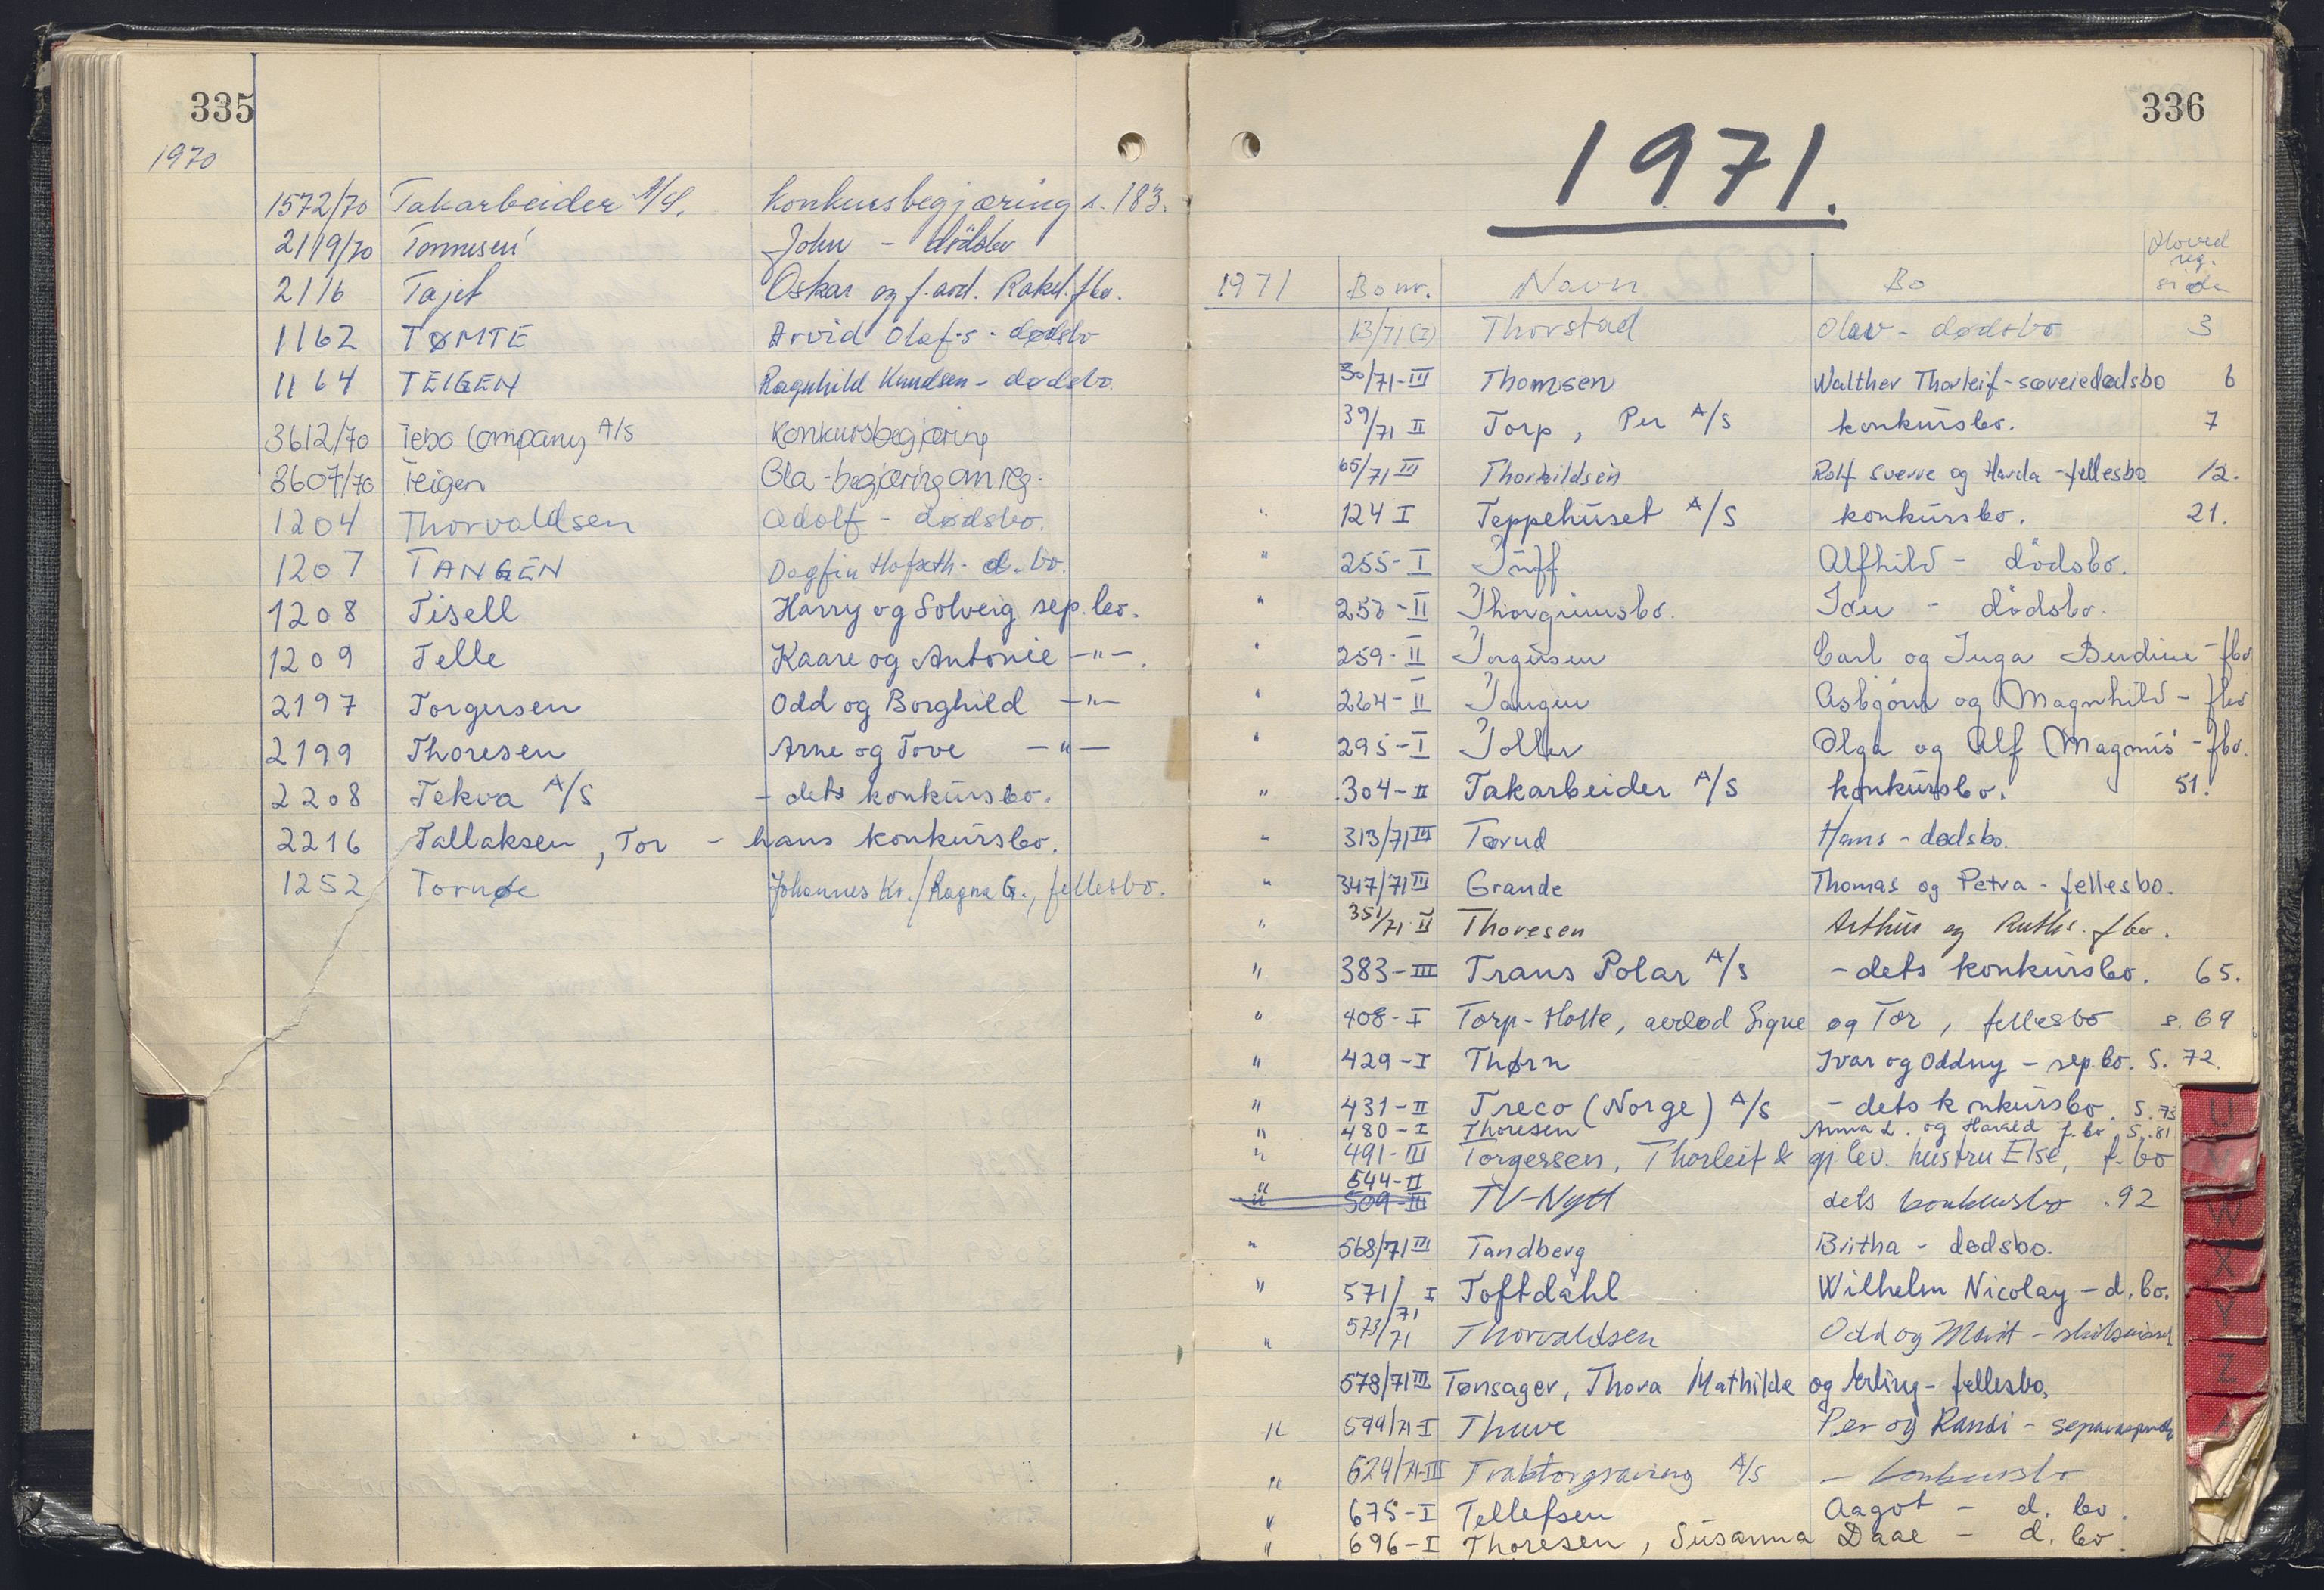 335
1970
1572/70 Takarbeider A/S. Konkursbegjæring s. 183.
2119/70 Tønnesen John - dödsbo
2116 Tajet Oskar og f. avd. Rakel. fbo.
1162 TØMTE Arvid Olaf's - dødsbo
1164 TEIGEN Ragnhild Knudsen - dødsbo.
3612/70 Tebo Company A/S Konkursbegjæring
3607/70 Teigen Ola - begjæring om reg.
1204 Thorvaldsen Adolf - dødsbo.
1207 TANGEN Dagfin - d. bo.
1208 Tisell Harry og Solveig sep. bo.
1209 Telle Kaare og Antonie -"-.
2197 Torgersen Odd og Borghild -"-
2199 Thoresen Arne og Tove -"-
2208 Tekva A/S - dets konkursbo.
2216 Tallaksen, Tor - hans konkursbo.
1252 Tornøe Johannes Kr./Ragna G., fellesbo.
336
1971.
Hoved
reg.
side
1971 Bo nr. Navn Bo
13/71 (I) Thorstad Olav - dødsbo 3
30/71-III Thomsen Walther Thorleif - særeiedødsbo 6
39/71 II Torp, Per A/S konkursbo. 7
65/71 III Thorkildsen Rolf Sverre og Harda - fellesbo 12.
" 124 I Teppehuset A/S konkursbo. 21.
" 255-I Tuff Alfhild - dödsbo.
" 256-II Thorgrimsbo. - dödsbo.
" 259-II Torgersen Carl og Inga Berdine - fbo
" 264-II Tangen Asbjørn og Magnhild - fbo
" 295-I Toller Olga og Alf Magnus - fbo.
" 304-II Takarbeider A/S konkursbo. 51.
" 313/71 III Tørud Hans - dødsbo.
" 347/71 III Grande Thomas og Petra - fellesbo.
" 351/71 II Thoresen Arthur og Ruths. fbo.
" 383-III Trans Polar A/S - dets konkursbo. 65.
" 408-I Torp-Holte, avdød Signe og Tor, fellesbo s. 69
" 429-I Thørn Ivar og Oddny - sep. bo. S. 72.
" 431-II Treco (Norge) A/S - dets konkursbo. S. 73
" 480-I Thoresen Anna L. og Harald f. bo S. 81
" 491-III Torgersen, Thorleif & gj.lev. hustru Else, f. bo
544-II
" 509-III TV-Nytt dets konkursbo .92
" 568/71 III Tandberg Britha - dødsbo.
" 571/71 I Toftdahl Wilhelm Nicolay - d. bo.
" 573/71 Thorvaldsen Odd og Marit -
578/71 III Tønsager, Thora Mathilde og Erling - fellesbo.
" 599/71 I Thuve Per og Randi -
" 629/71-III Traktorgraving A/S - konkursbo
" 675-I Tellefsen Aagot - d. bo.
" 696-I Thoresen, Susanna Daae - d. bo.
U
V
W
X
Y
Z